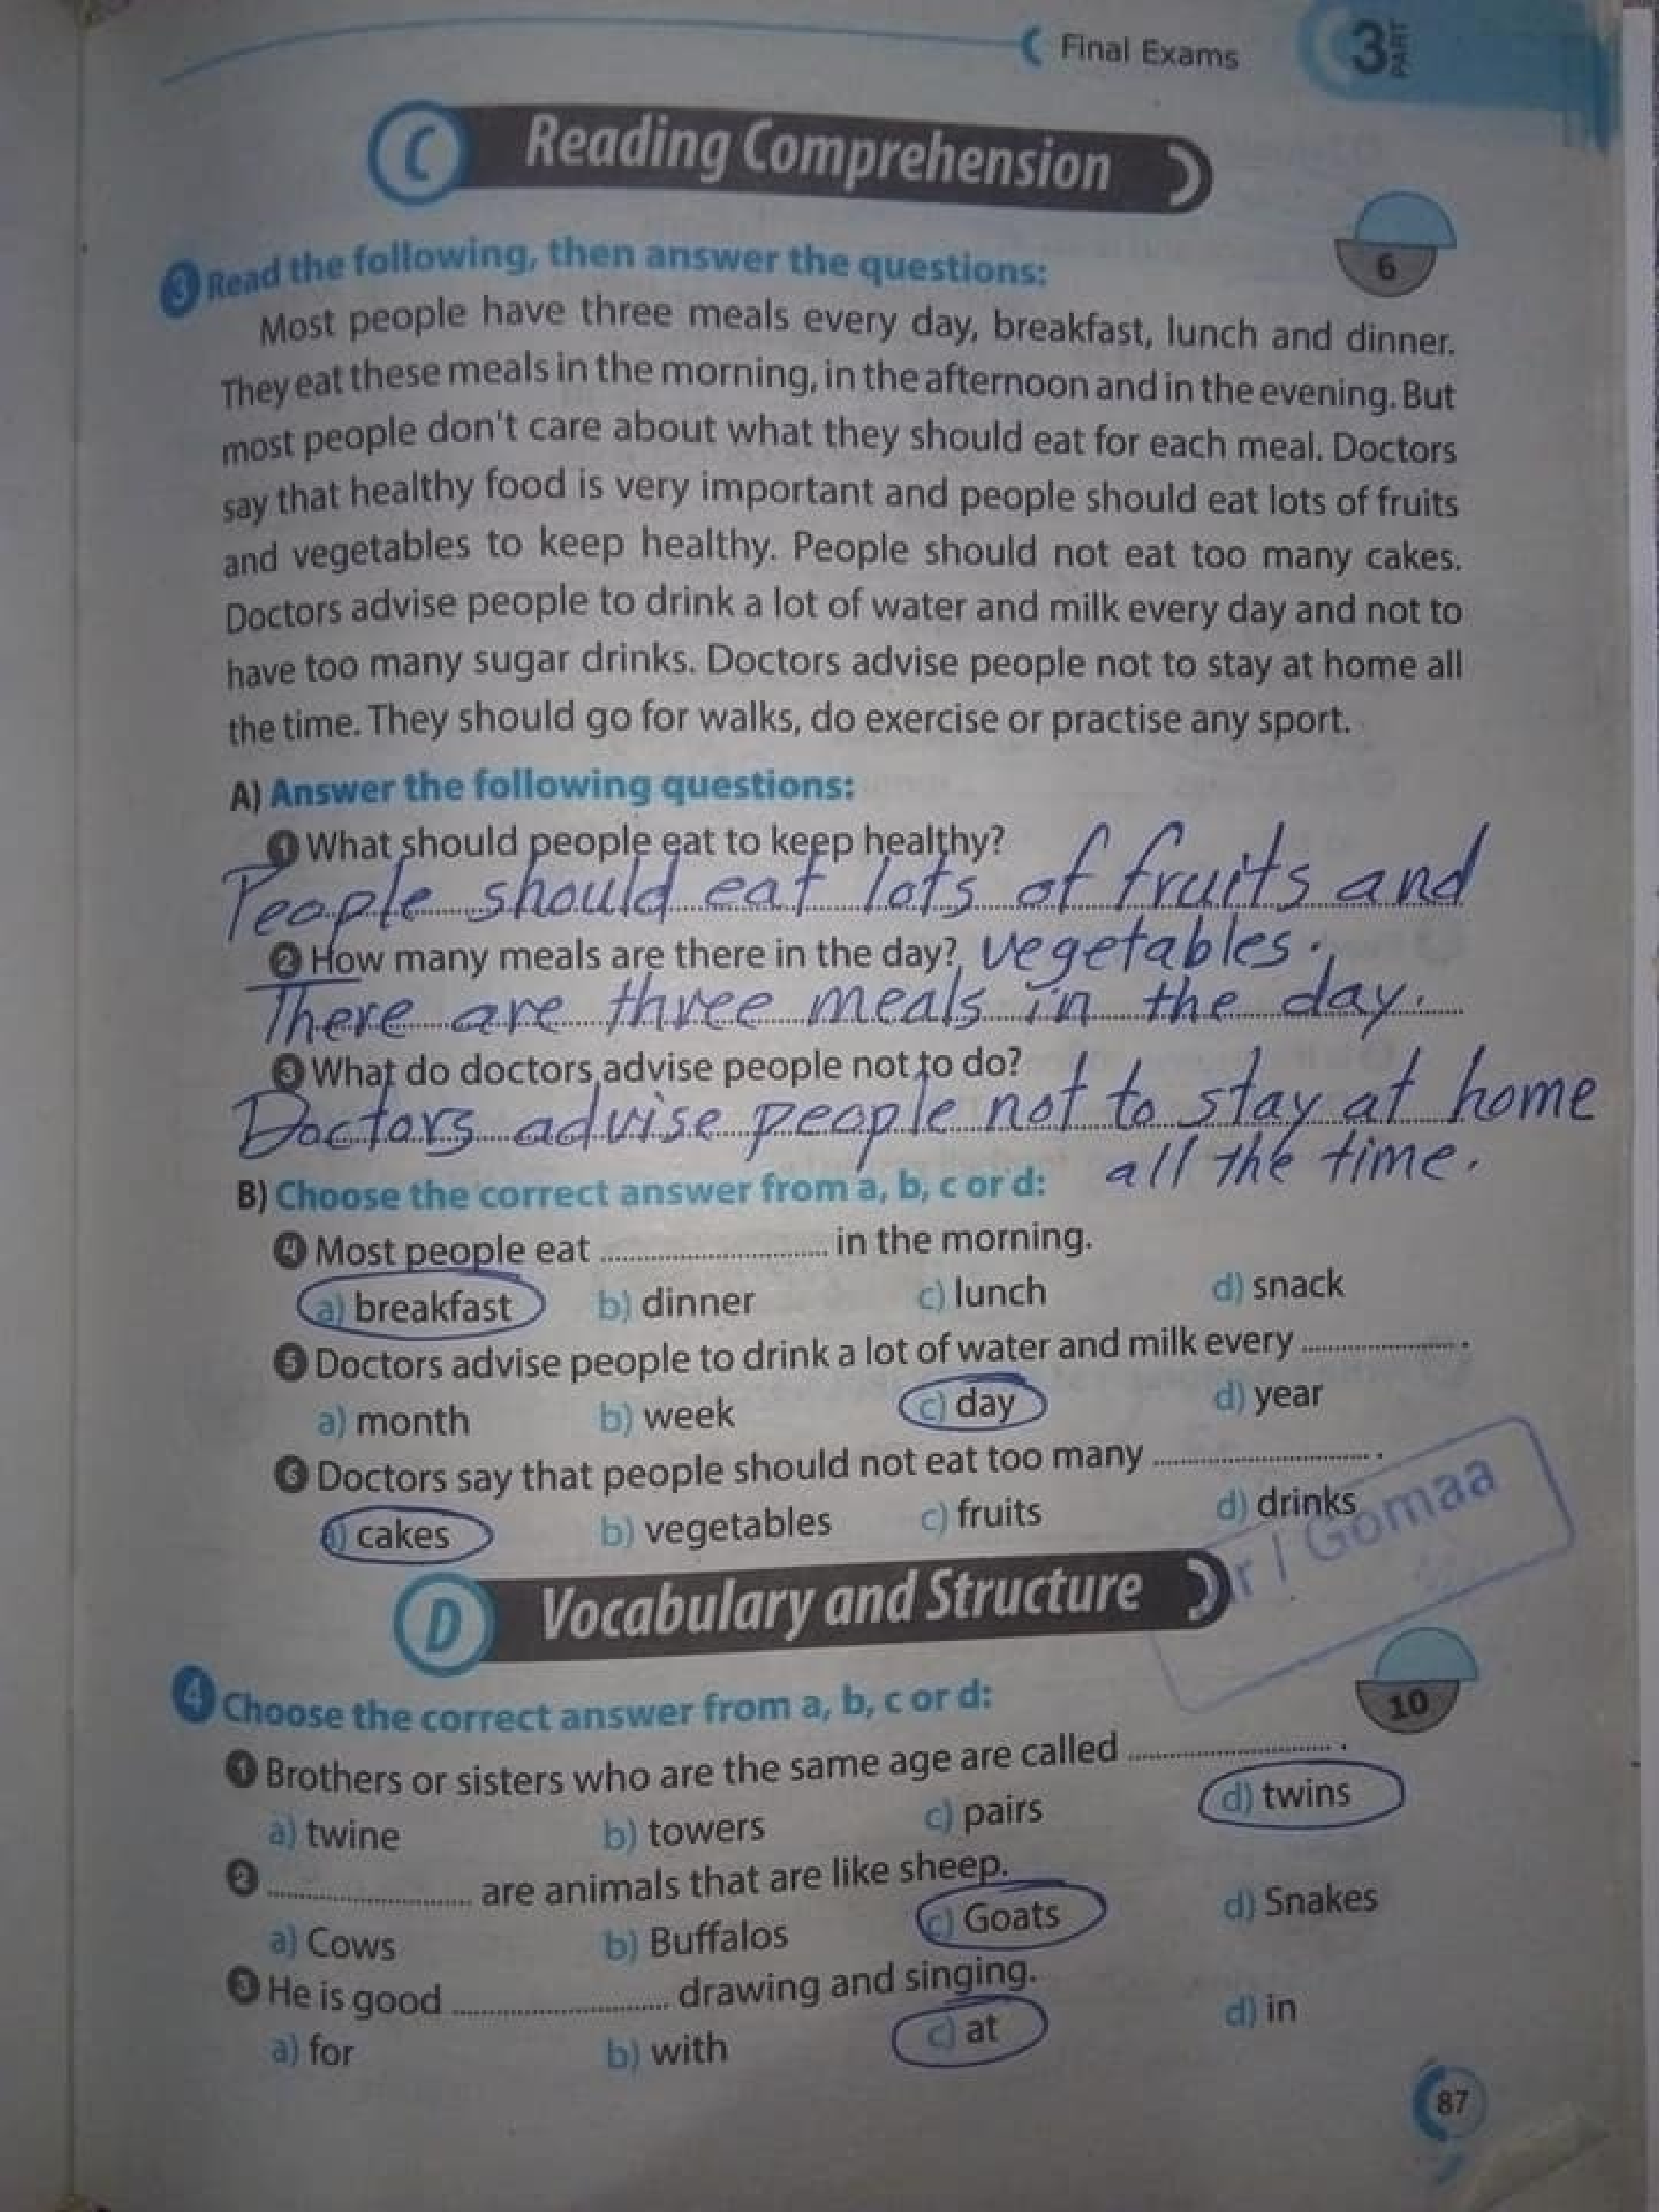 Final Exams
3 PART
C Reading Comprehension
6
3 Read the following, then answer the questions:
Most people have three meals every day, breakfast, lunch and dinner.
They eat these meals in the morning, in the afternoon and in the evening. But
most people don't care about what they should eat for each meal. Doctors
say that healthy food is very important and people should eat lots of fruits
and vegetables to keep healthy. People should not eat too many cakes.
Doctors advise people to drink a lot of water and milk every day and not to
have too many sugar drinks. Doctors advise people not to stay at home all
the time. They should go for walks, do exercise or practise any sport.
A) Answer the following questions:
1 What should people eat to keep healthy?
People should eat lots of fruits and
vegetables.
2 How many meals are there in the day?
There are three meals in the day.
3 What do doctors advise people not to do?
Doctors advise people not to stay at home
all the time.
B) Choose the correct answer from a, b, c or d:
4 Most people eat .............................. in the morning.
a) breakfast b) dinner c) lunch d) snack
5 Doctors advise people to drink a lot of water and milk every .................... .
a) month b) week c) day d) year
6 Doctors say that people should not eat too many .............................. .
a) cakes b) vegetables c) fruits d) drinks
r / Gomaa
D Vocabulary and Structure
10
4 Choose the correct answer from a, b, c or d:
1 Brothers or sisters who are the same age are called .............................. .
a) twine b) towers c) pairs d) twins
2 .............................. are animals that are like sheep.
a) Cows b) Buffalos c) Goats d) Snakes
3 He is good .............................. drawing and singing.
a) for b) with c) at d) in
87